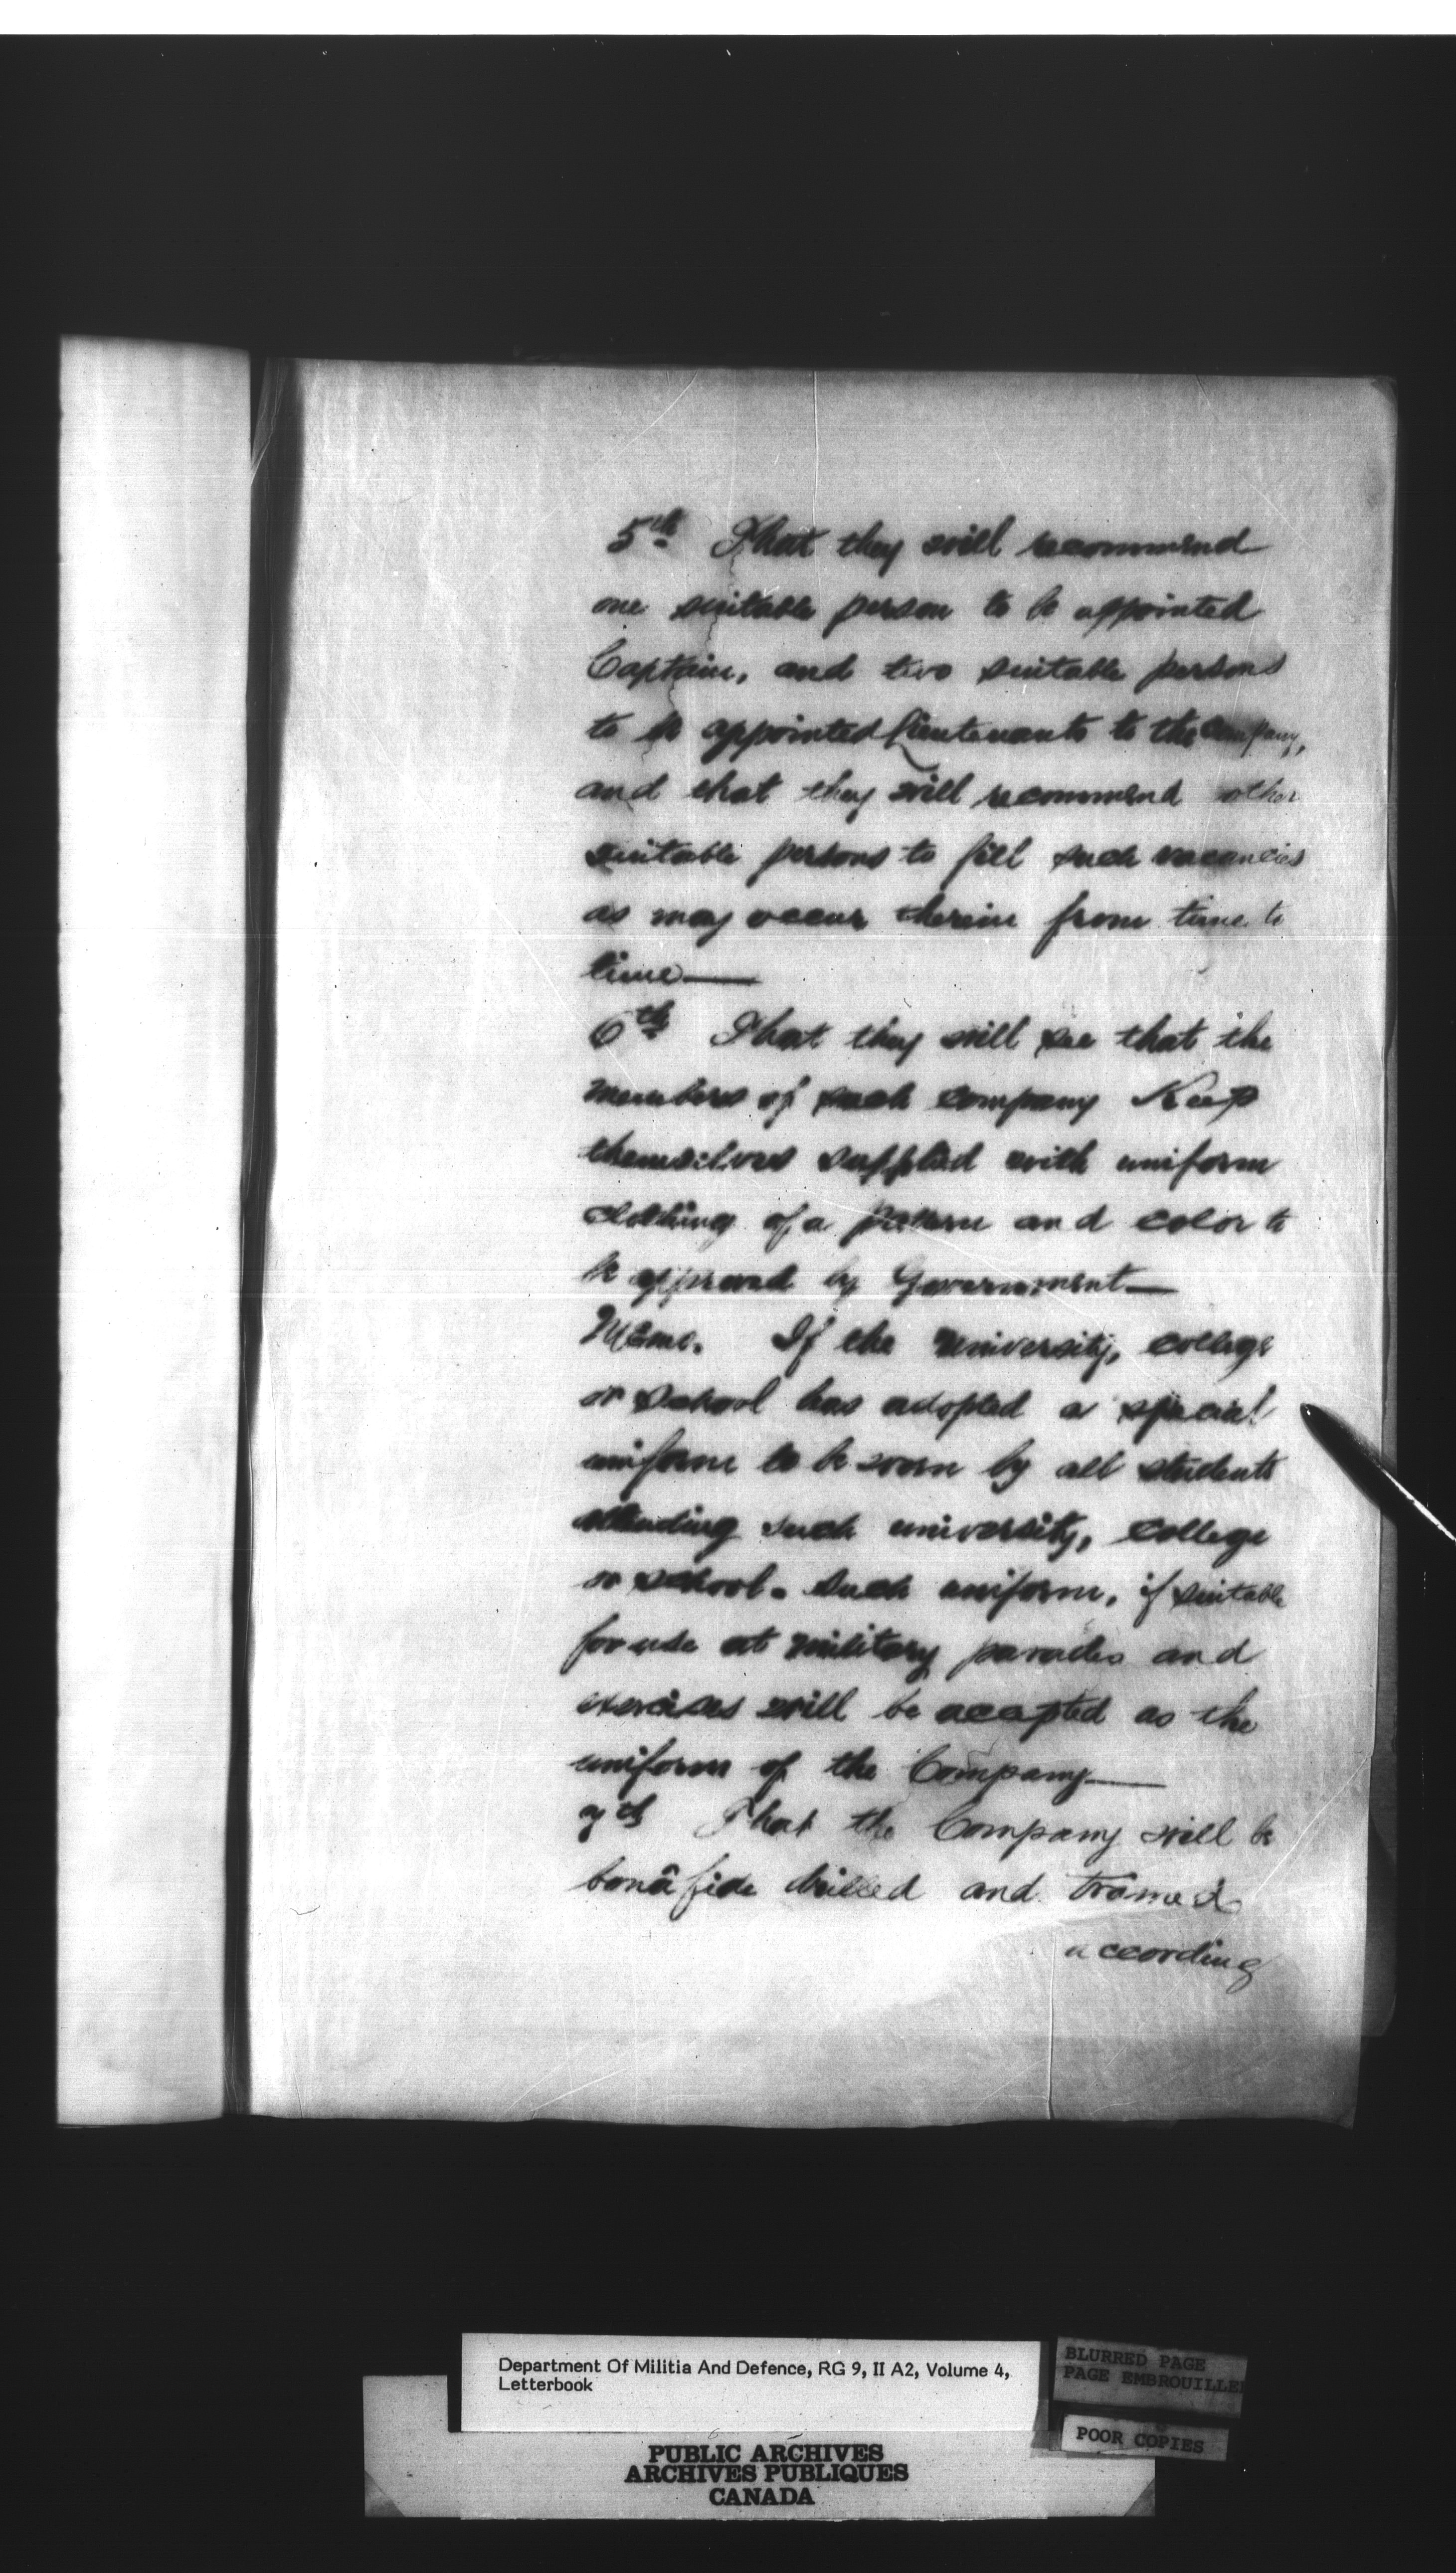 5th That they will recommend
one suitable person to be appointed
Captain, and two suitable persons
to be appointed Lieutenants to the Company,
and that they will recommend other
suitable persons to fill such vacancies
as may occur therein from time to
time—
6th That they will see that the
members of such company Keep
themselves supplied with uniform
clothing of a pattern and color to
be approved by Government—
Memo. If the university, college
or school has adopted a special
uniform to be worn by all students
attending such university, college
or school. Such uniform, if suitable
for use at military parades and
exercises will be accepted as the
uniform of the Company—
7th That the Company will be
bonâ fide drilled and trained
according
Department Of Militia And Defence, RG 9, II A2, Volume 4,
Letterbook
BLURRED PAGE
PAGE EMBROUILLE
POOR COPIES
PUBLIC ARCHIVES
ARCHIVES PUBLIQUES
CANADA